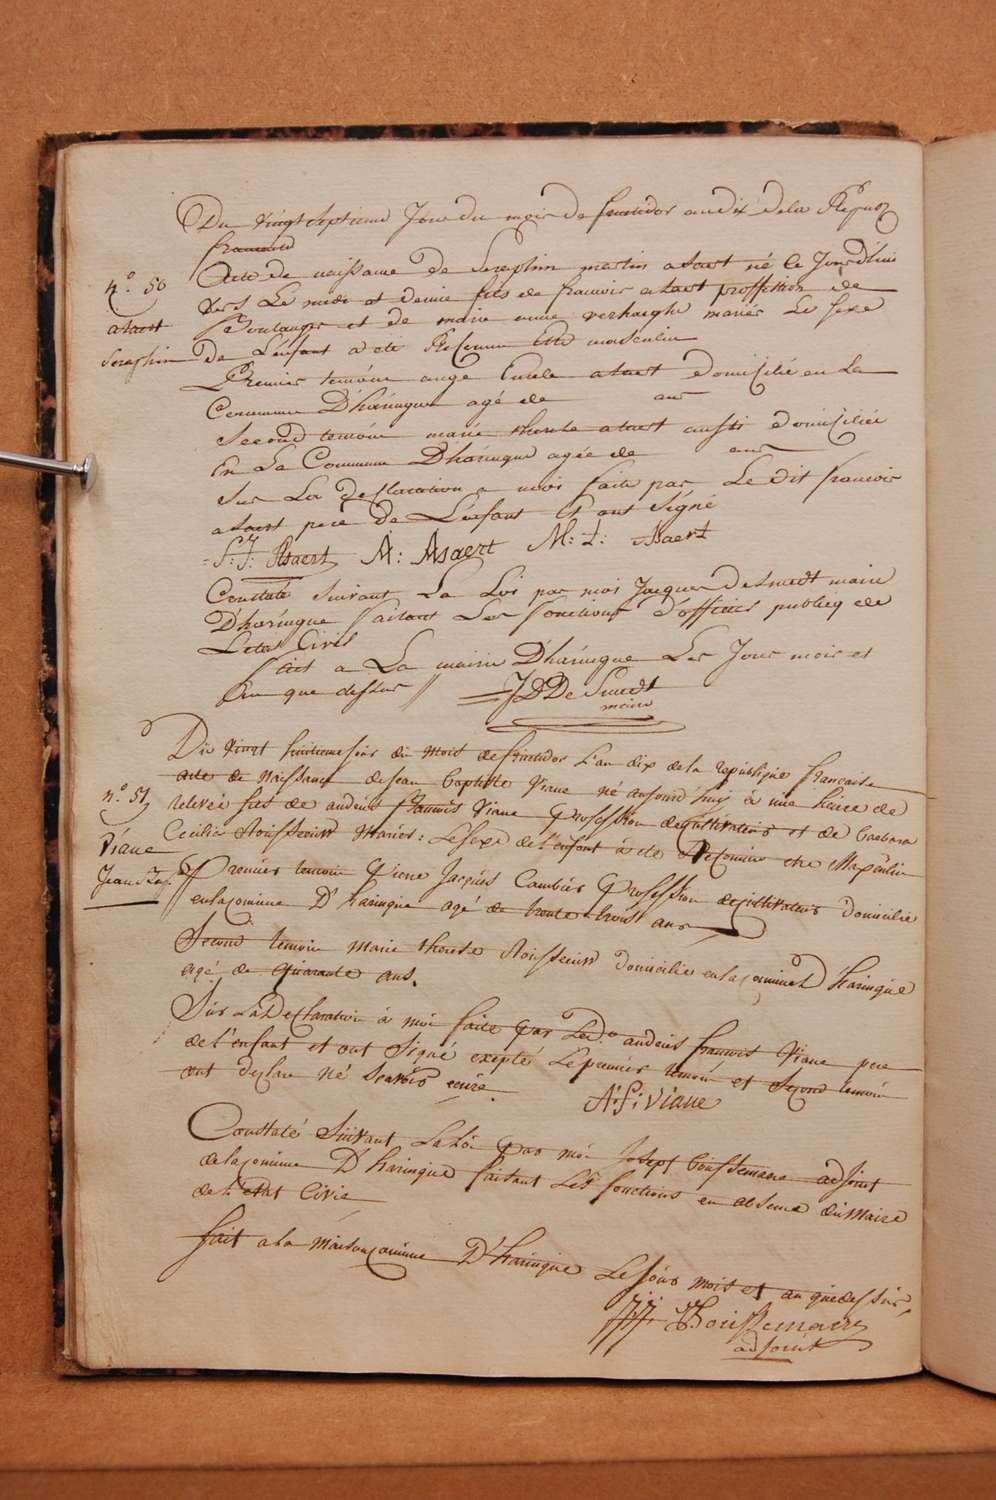 Du vingt septieme Jour du mois de fructidor an dix de la Repub
francaise
n.° 50
atsart
Seraphin
Acte de naissance de Seraphin martin atsart né le Jourdhui
vers Le midi et demie fils de francois atsart proffession de
Boulanger et de marie anne verhaeghe mariés Le sexe
de L'enfant a eté Reconnu Etre masculin
Premier temoin ange Eurele atsart domicilié en La
Commune D'haringue agé de ans
Second temoin marie therese atsart aussi domiciliée
En La Commune D'haringue agée de ans
Sur La declaration a moi faite par Le dit francois
atsart pere de L'enfant Et ont Signé
F: J: Asaert A: Asaert M: T: Asaert
Constaté Suivant La Loi par moi Jacques Desmedt maire
D'haringue faisant Les fonctions d'officier publicq de
L'etat Civil
fait a La mairie D'haringue Les Jour mois et
an que dessus // J D De Smedt
maire
Du vingt huitieme jour du mois de fructidor L'an dix de la republique francaise
n.° 51
Viane
Jean Bap.
acte de Naissance de jean baptiste Viane né aujourd'huy à une heure de
relevée fils de andeus francois Viane profession de cultivateur et de barbara
Cecilia Rousseeuw Mariés: Le sexe de l'enfant à été Reconnu etre Masculin
Premier temoin Pierre Jacques Cambier Profession de cultivateur domicilié
en la comune D'haringue agé de trente trois ans
Second temoin marie therese Rousseeuw domicilié en la comune D'haringue
agé de quarante ans.
Sur La Declaration à moi faite par Led.° andeus francois Viane pere
de l'enfant et ont signé exepté Le premier temoin et second temoin
ont declare né scavoir ecrire
A: f: viane
Constaté Suivant La Loi par moi Josept boussemaere adjoint
de la comune D'haringue faisant Les fonctions en absence du Maire
de l'etat Civil
fait a la Maison comune D'haringue Le jour mois et an que dessus,
JJ Boussemaere
adjoint